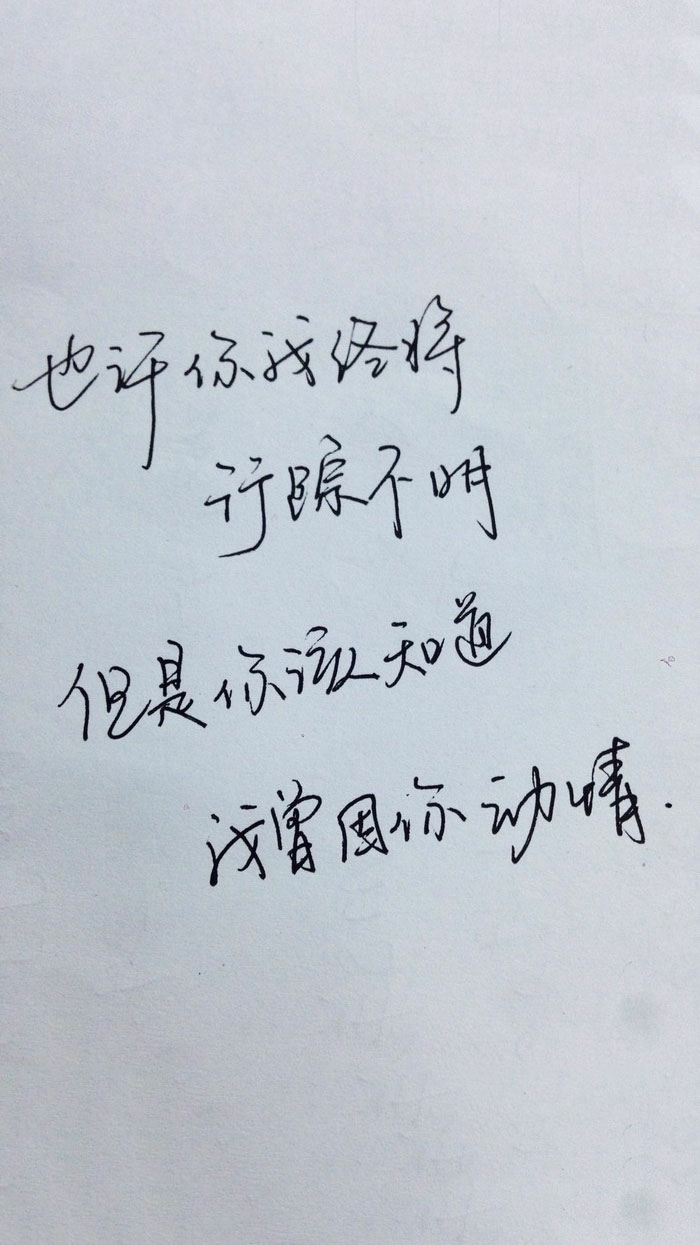 也许你我终将
行踪不明
但是你该知道
我曾因你动情.